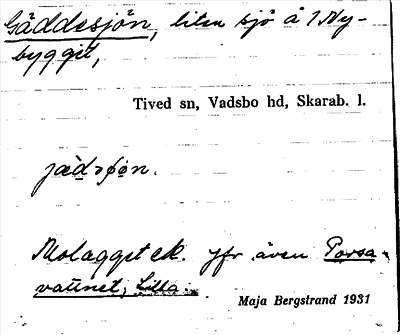 Gäddesjön, liten sjö å 1 Ny-
bygget,
Tived sn, Vadsbo hd, Skarab. l.
jädəʃøn.
Molagget ek. Jfr även Porsa-
vattnet, Lilla.
Maja Bergstrand 1931